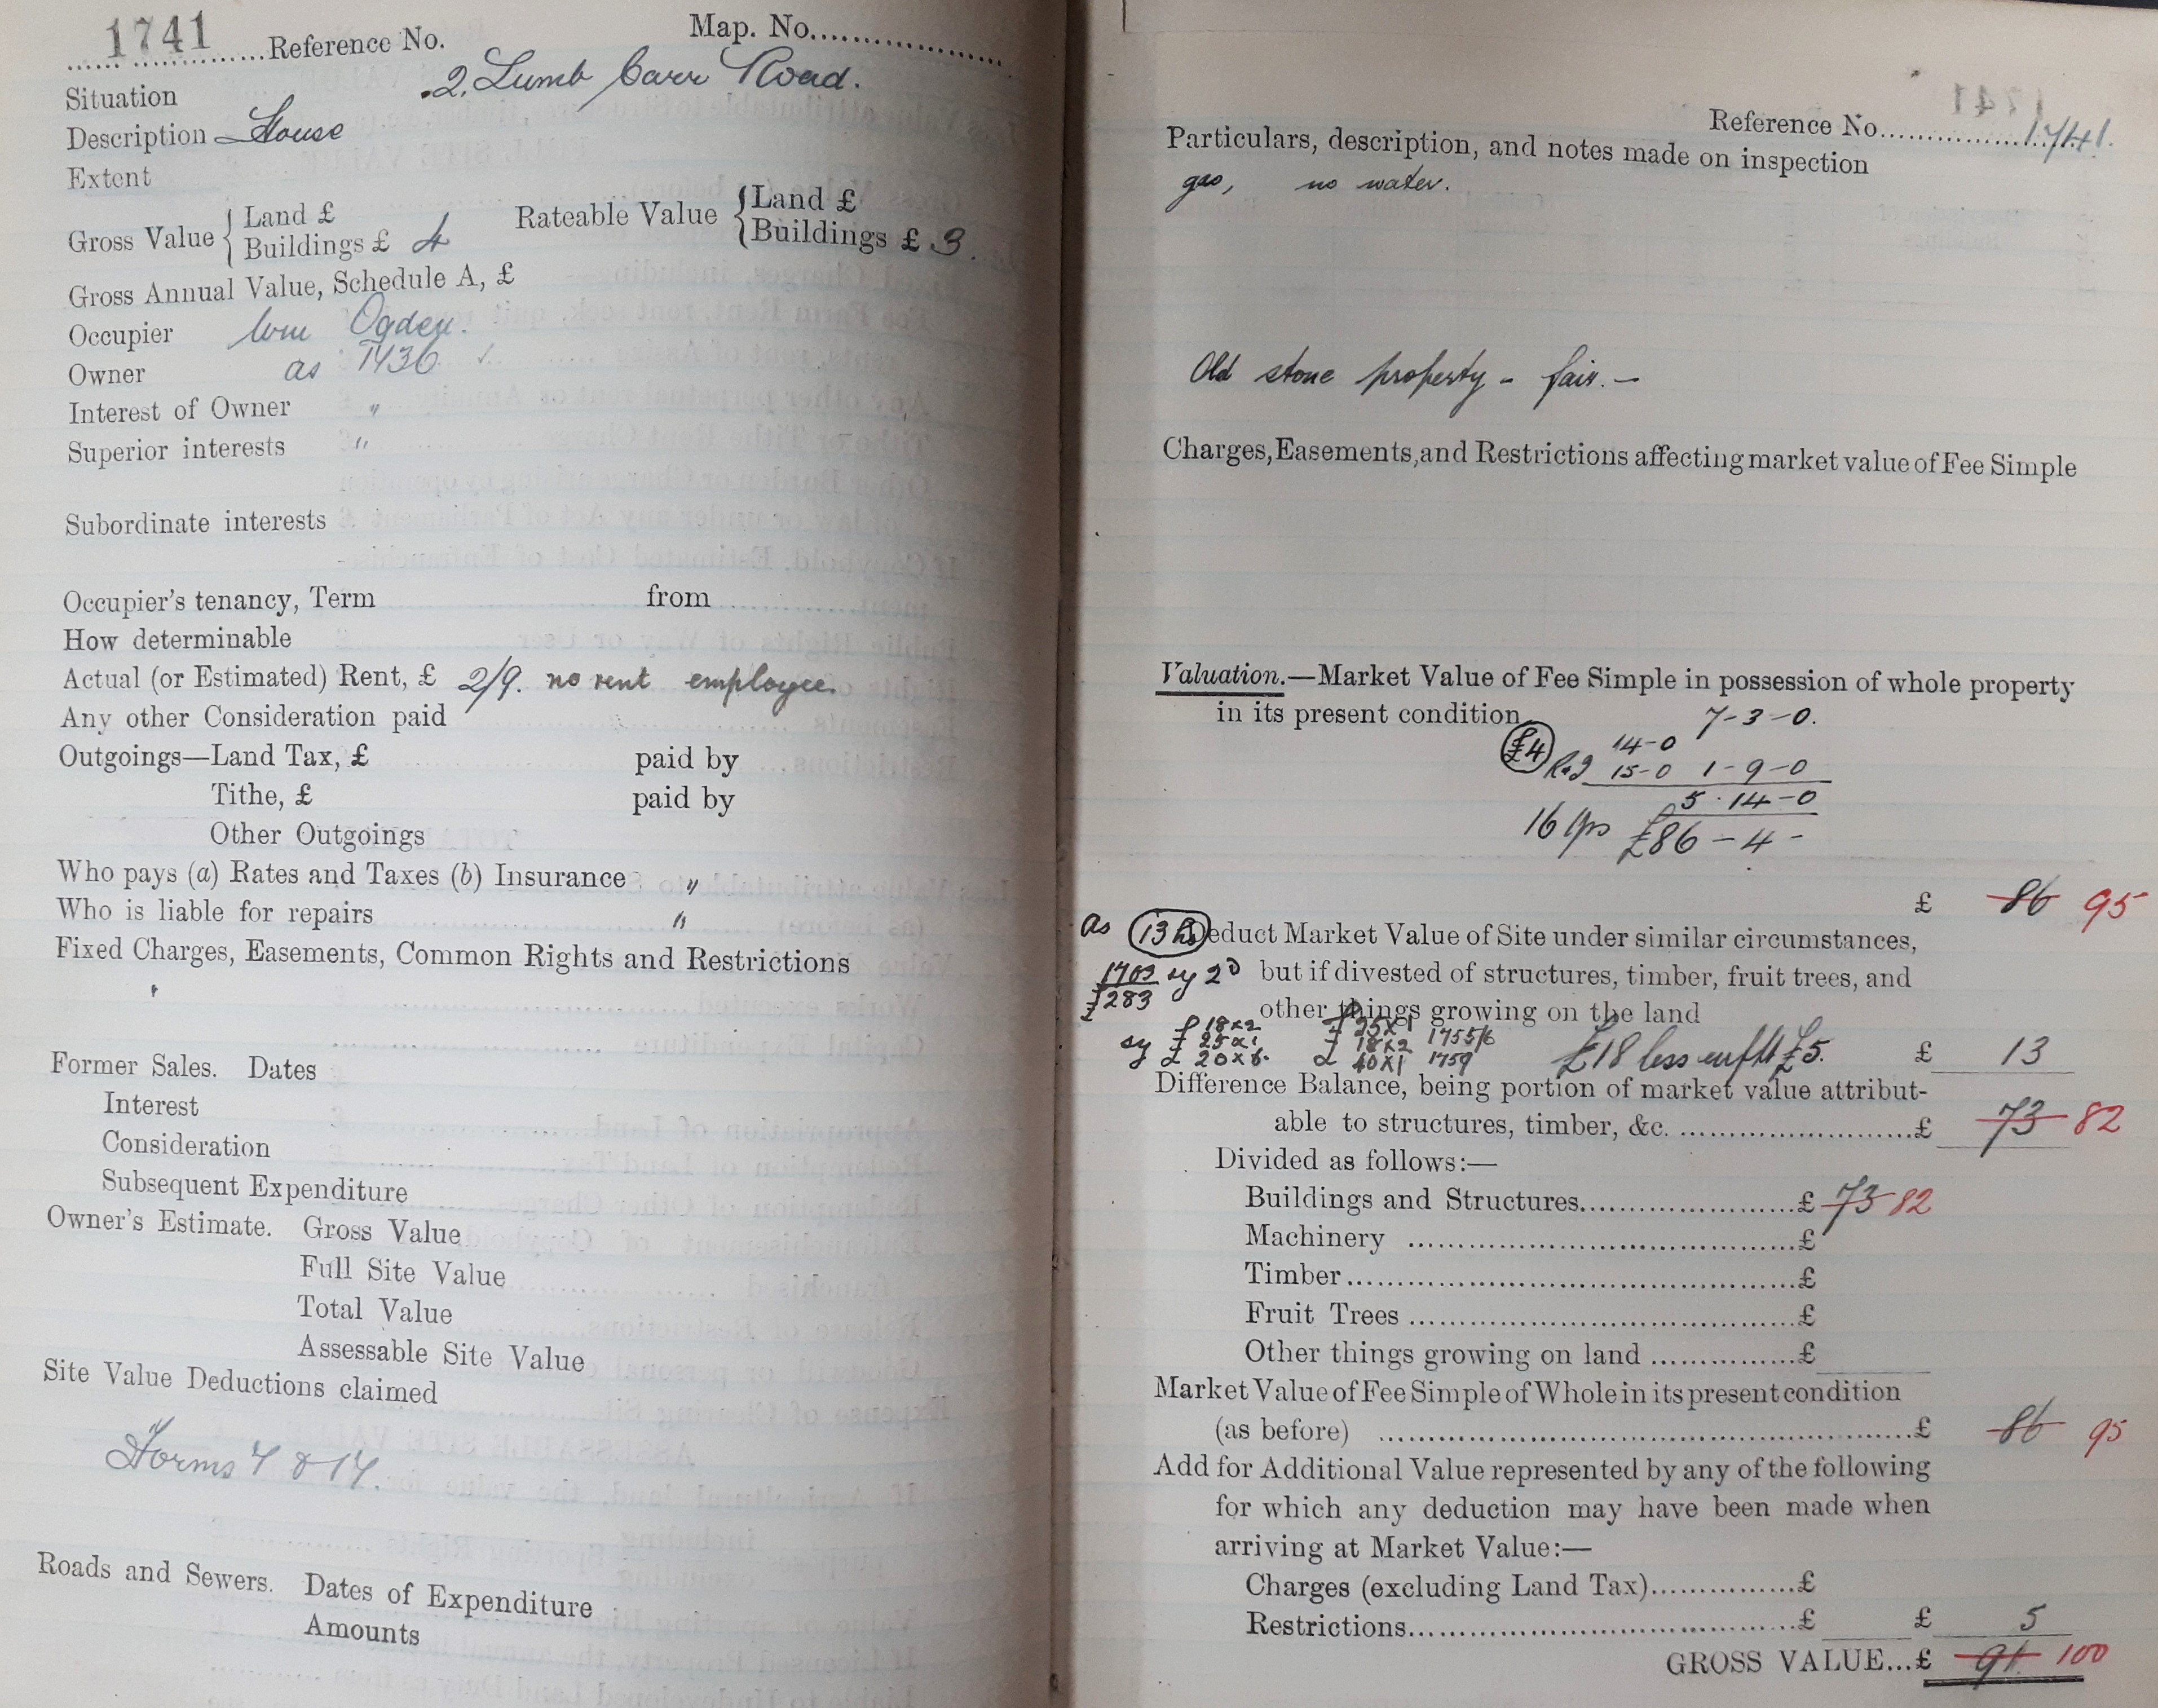 1741 Reference No. Map. No.
Situation 2, Lumb Carr Road.
Description House
Extent
Gross Value { Land £ Rateable Value { Land £
Buildings £ 4 Buildings £ 3.
Gross Annual Value, Schedule A, £
Occupier Wm Ogden.
Owner as 1436 ✓
Interest of Owner "
Superior interests "
Subordinate interests
Occupier's tenancy, Term from
How determinable
Actual (or Estimated) Rent, £ 2/9. no rent employee.
Any other Consideration paid
Outgoings—Land Tax, £ paid by
Tithe, £ paid by
Other Outgoings
Who pays (a) Rates and Taxes (b) Insurance "
Who is liable for repairs "
Fixed Charges, Easements, Common Rights and Restrictions
Former Sales. Dates
Interest
Consideration
Subsequent Expenditure
Owner's Estimate. Gross Value
Full Site Value
Total Value
Assessable Site Value
Site Value Deductions claimed
Forms 7 & 17.
Roads and Sewers. Dates of Expenditure
Amounts
Reference No. 1741.
Particulars, description, and notes made on inspection
gas, no water.
Old stone property - fair. -
Charges, Easements, and Restrictions affecting market value of Fee Simple
Valuation.—Market Value of Fee Simple in possession of whole property
in its present condition
7-3-0.
£4 14-0
15-0 1-9-0
5.14-0
16 yps £86-4-
£ 86 95
as 13 hs Deduct Market Value of Site under similar circumstances,
1703 sy 2D but if divested of structures, timber, fruit trees, and
£283 other things growing on the land
18x2 25x1
sy 25x1 18x2 1755/6
20x6. 40x1 1759 £18 less £5. £ 13
Difference Balance, being portion of market value attribut-
able to structures, timber, &c. £ 73 82
Divided as follows:—
Buildings and Structures £ 73 82
Machinery £
Timber £
Fruit Trees £
Other things growing on land £
Market Value of Fee Simple of Whole in its present condition
(as before) £ 86 95
Add for Additional Value represented by any of the following
for which any deduction may have been made when
arriving at Market Value:—
Charges (excluding Land Tax) £
Restrictions £ £ 5
GROSS VALUE...£ 91 100